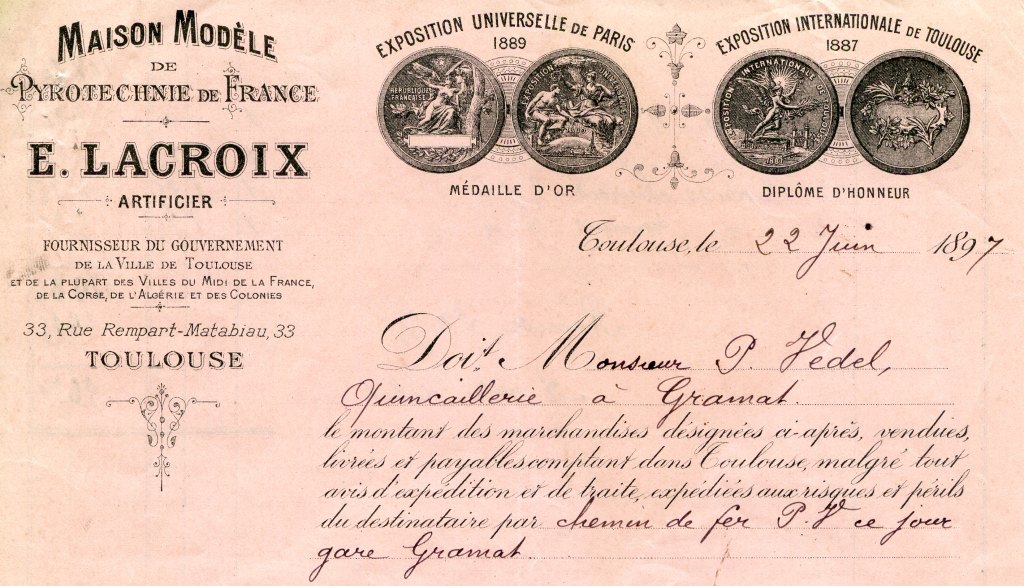 MAISON MODÈLE
DE
PYROTECHNIE DE FRANCE
E. LACROIX
ARTIFICIER
FOURNISSEUR DU GOUVERNEMENT
DE LA VILLE DE TOULOUSE
ET DE LA PLUPART DES VILLES DU MIDI DE LA FRANCE,
DE LA CORSE, DE L'ALGÉRIE ET DES COLONIES
33, Rue Rempart-Matabiau, 33
TOULOUSE
EXPOSITION UNIVERSELLE DE PARIS
1889
RÉPUBLIQUE
FRANÇAISE
EXPOSITION UNIVERSELLE
MÉDAILLE D'OR
EXPOSITION INTERNATIONALE DE TOULOUSE
1887
EXPOSITION INTERNATIONALE DE TOULOUSE
1887
DIPLÔME D'HONNEUR
Toulouse, le 22 Juin 1897
Doit Monsieur P. Vedel,
Quincaillerie à Gramat.
le montant des marchandises désignées ci-après, vendues,
livrées et payables comptant dans Toulouse, malgré tout
avis d'expédition et de traite, expédiées aux risques et périls
du destinataire par chemin de fer P.V ce jour
gare Gramat.